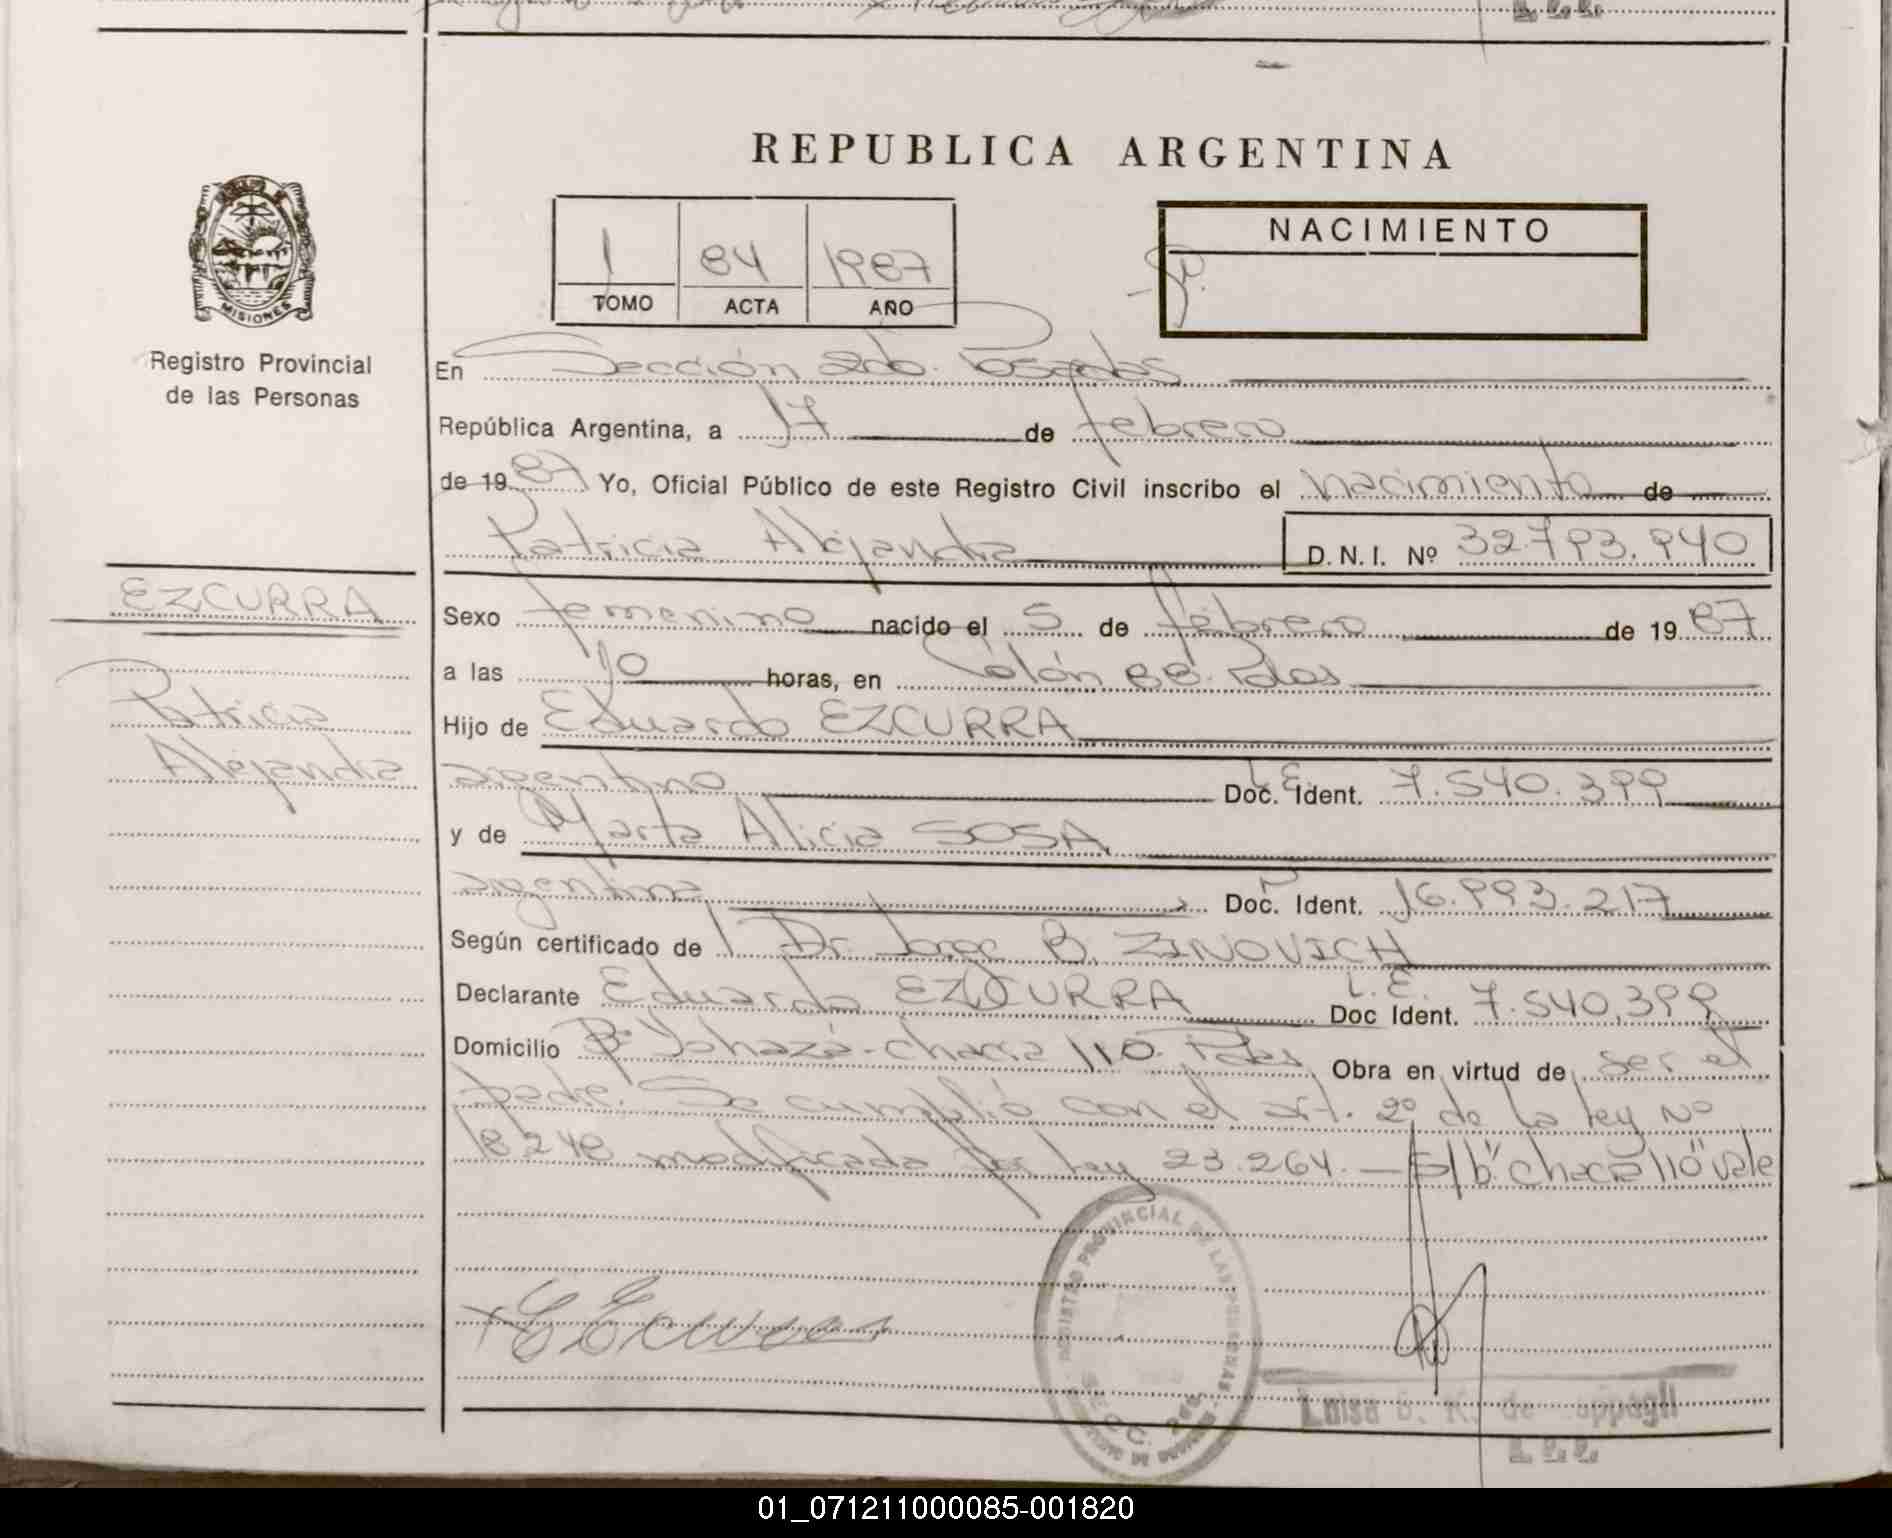 REPUBLICA ARGENTINA
MISIONES
Registro Provincial
de las Personas
1 84 1987
TOMO ACTA AÑO
NACIMIENTO
En Sección 2da. Posadas
República Argentina, a 17 de febrero
de 1987 Yo, Oficial Público de este Registro Civil inscribo el nacimiento de
Patricia Alejandra D.N.I. Nº 32.793.940
EZCURRA
Patricia
Alejandra
Sexo femenino nacido el 5 de febrero de 1987
a las 10 horas, en Colón 88. Pdas
Hijo de Eduardo EZCURRA
argentino Doc. Ident. L.E. 7.540.399
y de Marta Alicia SOSA
argentina Doc. Ident. 16.993.217
Según certificado de Dr. Jorge B. ZINOVICH
Declarante Eduardo EZCURRA L.E. Doc Ident. 7.540.399
Domicilio Bº Yohazá-chacra 110. Pdas Obra en virtud de ser el
padre. Se cumplió con el art. 2º de la ley Nº
18.248 modificada por ley 23.264.— S/b: "chacra 110" vale
REGISTRO PROVINCIAL DE LAS PERSONAS
SECC. 2da.
Luisa K. de
01_071211000085-001820